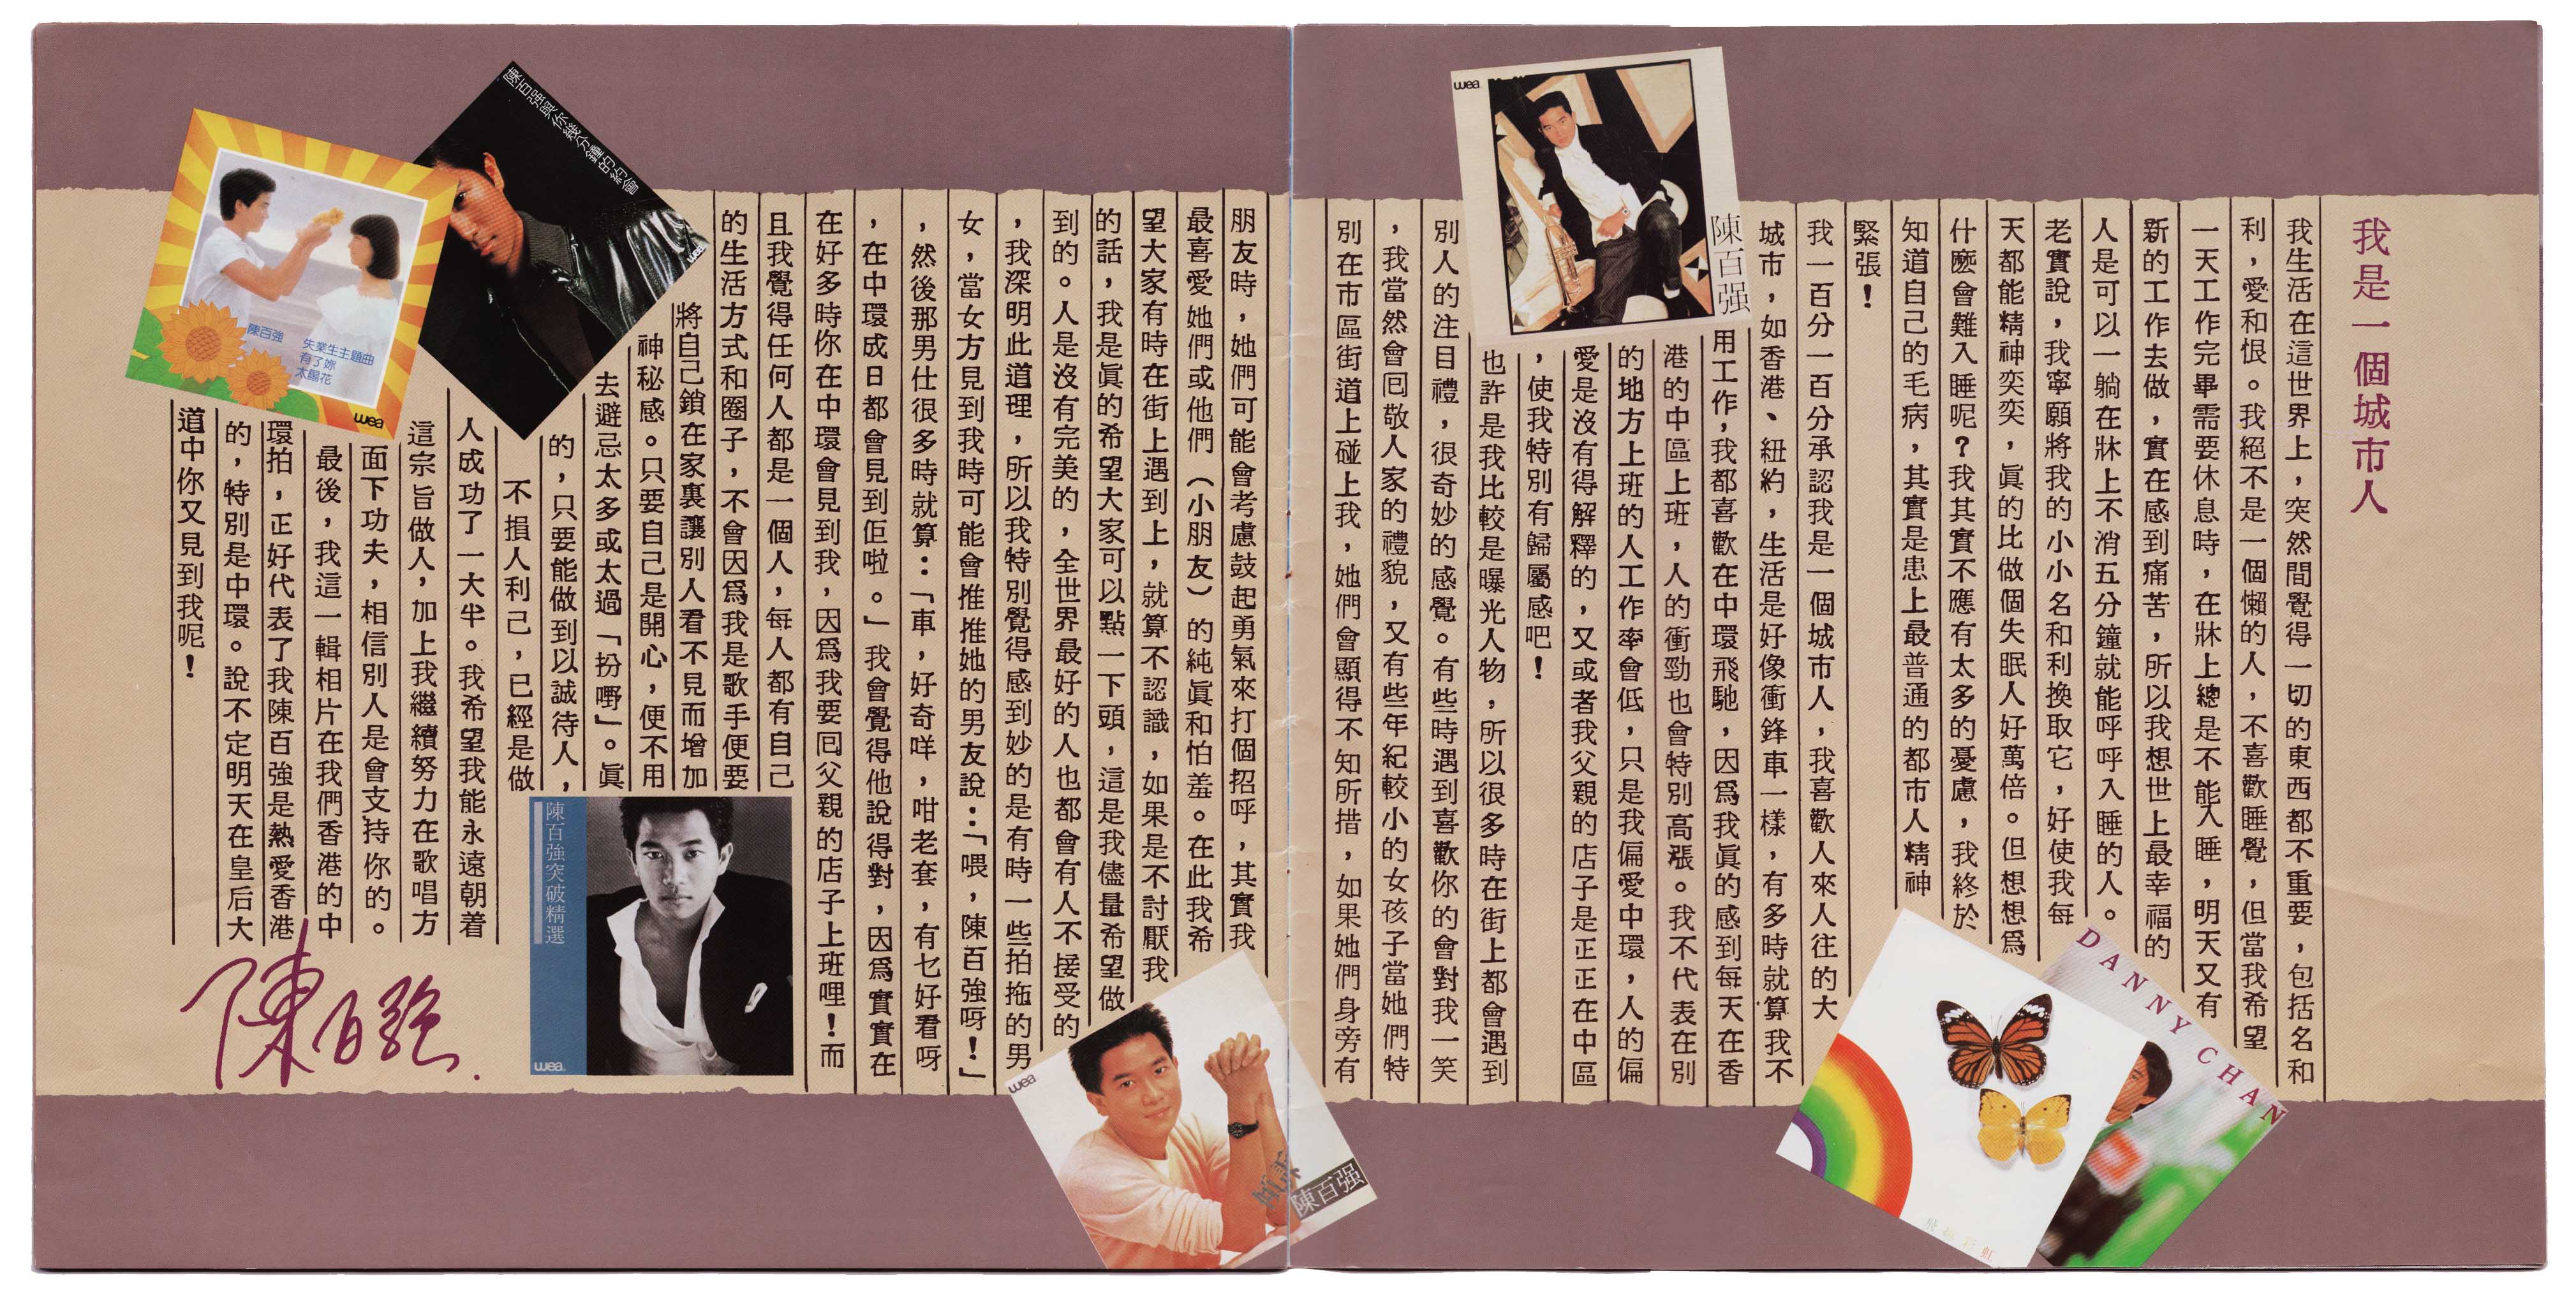 我是一個城市人
我生活在這世界上，突然間覺得一切的東西都不重要，包括名和
利，愛和恨。我絕不是一個懶的人，不喜歡睡覺，但當我希望
一天工作完畢需要休息時，在牀上總是不能入睡，明天又有
新的工作去做，實在感到痛苦，所以我想世上最幸福的
人是可以一躺在牀上不消五分鐘就能呼呼入睡的人。
老實說，我寧願將我的小小名和利換取它，好使我每
天都能精神奕奕，眞的比做個失眠人好萬倍。但想想爲
什麽會難入睡呢？我其實不應有太多的憂慮，我終於
知道自己的毛病，其實是患上最普通的都市人精神
緊張！
我一百分一百分承認我是一個城市人，我喜歡人來人往的大
城市，如香港、紐約，生活是好像衝鋒車一樣，有多時就算我不
用工作，我都喜歡在中環飛馳，因爲我眞的感到每天在香
港的中區上班，人的衝勁也會特別高漲。我不代表在別
的地方上班的人工作率會低，只是我偏愛中環，人的偏
愛是沒有得解釋的，又或者我父親的店子是正正在中區
，使我特別有歸屬感吧！
也許是我比較是曝光人物，所以很多時在街上都會遇到
別人的注目禮，很奇妙的感覺。有些時遇到喜歡你的會對我一笑
，我當然會囘敬人家的禮貌，又有些年紀較小的女孩子當她們特
別在市區街道上碰上我，她們會顯得不知所措，如果她們身旁有
朋友時，她們可能會考慮鼓起勇氣來打個招呼，其實我
最喜愛她們或他們（小朋友）的純眞和怕羞。在此我希
望大家有時在街上遇到上，就算不認識，如果是不討厭我
的話，我是眞的希望大家可以點一下頭，這是我儘量希望做
到的。人是沒有完美的，全世界最好的人也都會有人不接受的
，我深明此道理，所以我特別覺得感到妙的是有時一些拍拖的男
女，當女方見到我時可能會推推她的男友說：「喂，陳百強呀！」
，然後那男仕很多時就算：「車，好奇咩，咁老套，有乜好看呀
，在中環成日都會見到佢啦。」我會覺得他說得對，因爲實實在
在好多時你在中環會見到我，因爲我要囘父親的店子上班哩！而
且我覺得任何人都是一個人，每人都有自己
的生活方式和圈子，不會因爲我是歌手便要
將自己鎖在家裏讓別人看不見而增加
神秘感。只要自己是開心，便不用
去避忌太多或太過「扮嘢」。眞
的，只要能做到以誠待人，
不損人利己，已經是做
人成功了一大半。我希望我能永遠朝着
這宗旨做人，加上我繼續努力在歌唱方
面下功夫，相信別人是會支持你的。
最後，我這一輯相片在我們香港的中
環拍，正好代表了我陳百強是熱愛香港
的，特別是中環。說不定明天在皇后大
道中你又見到我呢！
陳百強
wea
陳百强
DANNY CHAN
飛越彩虹
wea
傾訴
陳百强
陳百強突破精選
wea
陳百強與你幾分鐘的約會
wea
陳百強
失業生主題曲
有了妳
太陽花
wea